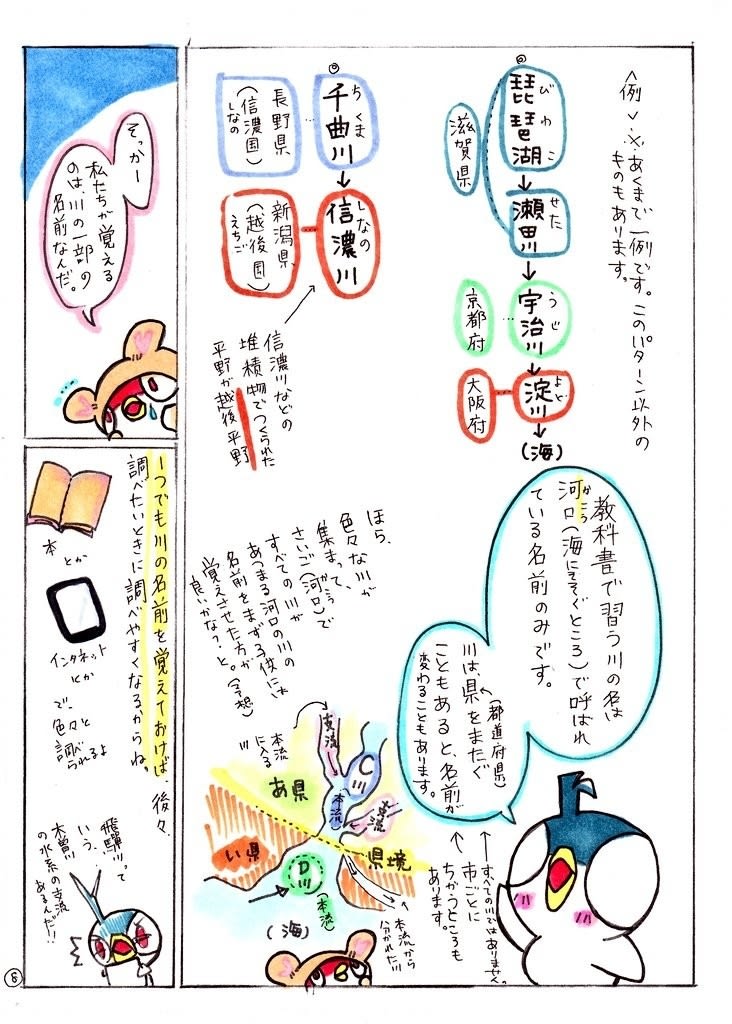 〈例〉※あくまで一例です。このパターン以外の
ものもあります。
琵琶湖
びわこ
↓
瀬田川
せた
滋賀県
↓
宇治川
うじ
京都府
↓
淀川
よど
大阪府
↓
(海)
千曲川
ちくま
長野県
(信濃国)
しなの
↓
信濃川
しなの
新潟県
(越後国)
えちご
信濃川などの
堆積物でつくられた
平野が越後平野
教科書で習う川の名は
河口(海にそそぐところ)で呼ばれ
かこう
ている名前のみです。
(都道府県)
川は、県をまたぐ
こともあると、名前が
変わることもあります。
↑すべての川ではありません。
↑市ごとに
ちがうところも
あります。
ほら、
色々な川が
集まって、
さいご(河口)で
かこう
すべての川が
あつまる河口の川の
名前をまずする役には
覚えさせた方が
良いかな?と。(予想)
支流
本流
に入る
川
C川
(本流)
支流
あ県
い県
県境
D川
(本流)
(海)
本流から
分かれた川
そっかー
私たちが覚える
のは、川の一部の
名前なんだ。
1つでも川の名前を覚えておけば、後々、
調べたいときに調べやすくなるからね。
本
とか
インタネット
とか
で、
色々と
調べ
られるよ
飛騨川って
いう、
木曽川
の水系の支流
あるんだ!!
8